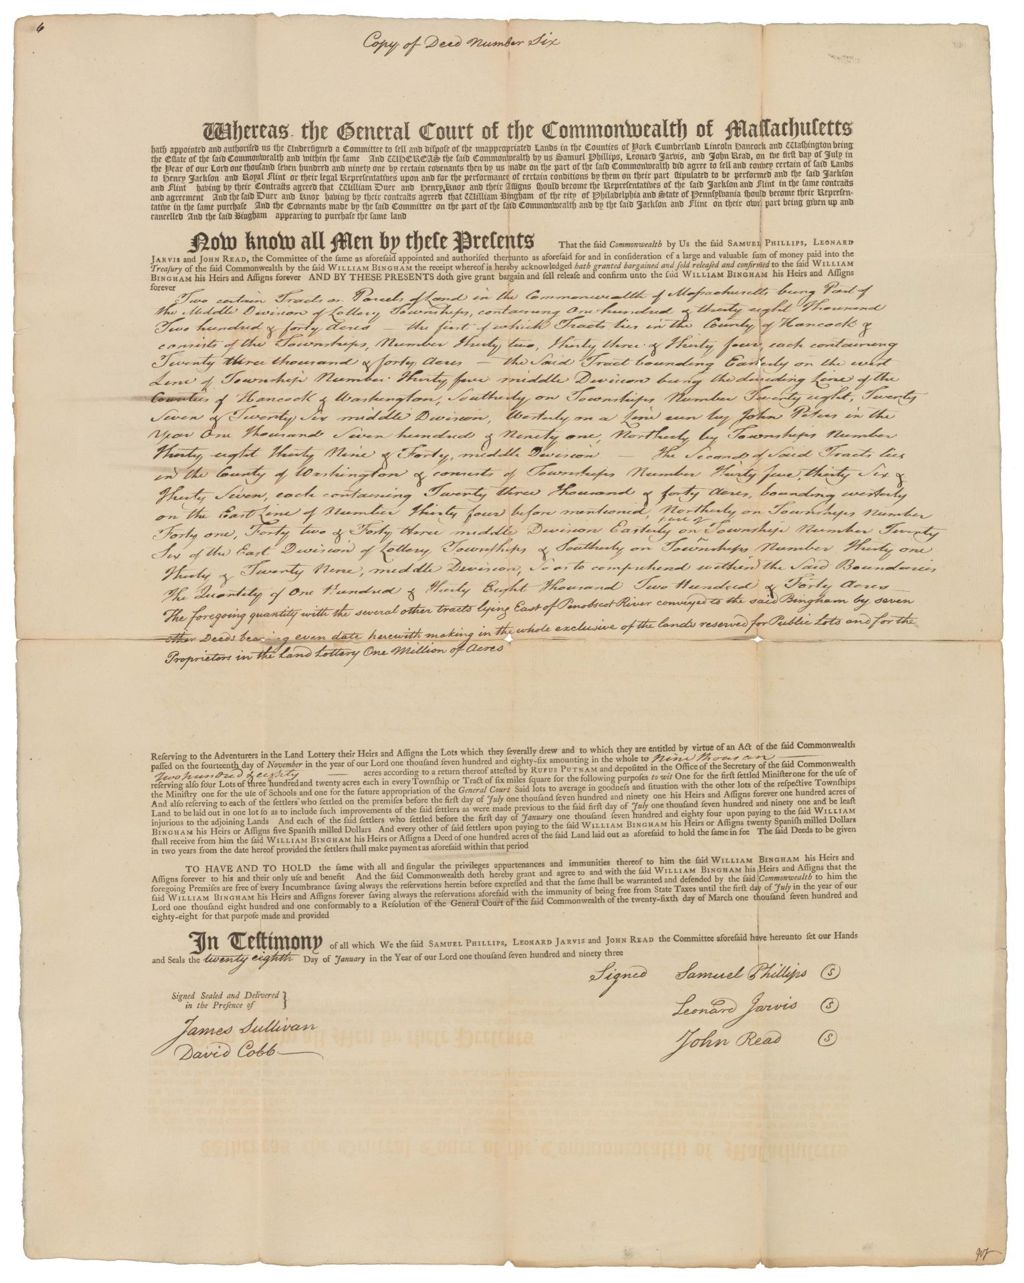 6
Copy of Deed Number Six
Whereas the General Court of the Commonwealth of Maſſachuſetts
hath appointed and authoriſed us the Underſigned a Committee to ſell and diſpoſe of the unappropriated Lands in the Counties of York Cumberland Lincoln Hancock and Waſhington being
the Eſtate of the ſaid Commonwealth and within the ſame And WHEREAS the ſaid Commonwealth by us Samuel Phillips, Leonard Jarvis, and John Read, on the firſt day of July in
the Year of our Lord one thouſand ſeven hundred and ninety one by certain covenants then by us made on the part of the ſaid Commonwealth did agree to ſell and convey certain of ſaid Lands
to Henry Jackſon and Royal Flint or their legal Repreſentatives upon and for the performance of certain conditions by them on their part ſtipulated to be performed and the ſaid Jackſon
and Flint having by their Contracts agreed that William Duer and Henry Knox and their Aſſigns ſhould become the Repreſentatives of the ſaid Jackſon and Flint in the ſame contracts
and agreement And the ſaid Duer and Knox having by their contracts agreed that William Bingham of the city of Philadelphia and State of Pennſylvania ſhould become their Repreſen-
tative in the ſame purchaſe And the Covenants made by the ſaid Committee on the part of the ſaid Commonwealth and by the ſaid Jackſon and Flint on their own part being given up and
cancelled And the ſaid Bingham appearing to purchaſe the ſame land
Now know all Men by theſe Preſents That the ſaid Commonwealth by Us the ſaid SAMUEL PHILLIPS, LEONARD
JARVIS and JOHN READ, the Committee of the ſame as aforeſaid appointed and authoriſed thereunto as aforeſaid for and in conſideration of a large and valuable ſum of money paid into the
Treaſury of the ſaid Commonwealth by the ſaid WILLIAM BINGHAM the receipt whereof is hereby acknowledged hath granted bargained and ſold releaſed and confirmed to the ſaid WILLIAM
BINGHAM his Heirs and Aſſigns forever AND BY THESE PRESENTS doth give grant bargain and ſell releaſe and confirm unto the ſaid WILLIAM BINGHAM his Heirs and Aſſigns
forever
Two certain Tracts or Parcels of Land in the Commonwealth of Maſsachusetts being Part of
the Middle Division of Lottery Townships, containing One hundred & thirty eight Thousand
Two hundred & forty Acres — the first of which Tracts lies in the County of Hancock &
consists of the Townships, Number Thirty two, Thirty three & Thirty four, each containing
Twenty three thousand & forty Acres — the Said Tract bounding Easterly on the west
Line of Township Number Thirty five middle Division being the dividing Line of the
Counties of Hancock & Washington, Southerly on Townships Number Twenty eight, Twenty
Seven & Twenty Six middle Division, Westerly on a Line run by John Peters in the
Year One thousand Seven hundred & Ninety one, Northerly by Townships Number
Thirty eight Thirty Nine & Forty, middle Division — The Second of Said Tracts lies
in the County of Washington & consists of Townships Number Thirty five, thirty Six &
Thirty Seven, each containing Twenty three Thousand & forty Acres, bounding westerly
on the East Line of Number Thirty four before mentioned, Northerly on Townships Number
Forty one, Forty two & Forty three middle Division Easterly on Township Number Twenty
Six of the East Division of Lottery Townships & Southerly on Townships Number Thirty one
Thirty & Twenty Nine, middle Division, So as to comprehend within the Said Boundaries
The Quantity of One Hundred & Thirty Eight Thousand Two Hundred & Forty Acres
The foregoing quantity with the several other tracts lying East of Penobscot River conveyed to the said Bingham by seven
other Deeds bearing even date herewith making in the whole exclusive of the lands reserved for Public Lots and for the
Proprietors in the Land Lottery One Million of Acres
Reſerving to the Adventurers in the Land Lottery their Heirs and Aſſigns the Lots which they ſeverally drew and to which they are entitled by virtue of an Act of the ſaid Commonwealth
paſſed on the fourteenth day of November in the year of our Lord one thouſand ſeven hundred and eighty-ſix amounting in the whole to Nine thousand
Two hundred & eighty — acres according to a return thereof atteſted by RUFUS PUTNAM and depoſited in the Office of the Secretary of the ſaid Commonwealth
reſerving alſo four Lots of three hundred and twenty acres each in every Townſhip or Tract of ſix miles ſquare for the following purpoſes to wit One for the firſt ſettled Miniſter one for the uſe of
the Miniſtry one for the uſe of Schools and one for the future appropriation of the General Court Said lots to average in goodneſs and ſituation with the other lots of the reſpective Townſhips
And alſo reſerving to each of the ſettlers who ſettled on the premiſes before the firſt day of July one thouſand ſeven hundred and ninety one his Heirs and Aſſigns forever one hundred acres of
Land to be laid out in one lot ſo as to include ſuch improvements of the ſaid ſettlers as were made previous to the ſaid firſt day of July one thouſand ſeven hundred and ninety one and be leaſt
injurious to the adjoining Lands And each of the ſaid ſettlers who ſettled before the firſt day of January one thouſand ſeven hundred and eighty four upon paying to the ſaid WILLIAM
BINGHAM his Heirs or Aſſigns five Spaniſh milled Dollars And every other of ſaid ſettlers upon paying to the ſaid WILLIAM BINGHAM his Heirs or Aſſigns twenty Spaniſh milled Dollars
ſhall receive from him the ſaid WILLIAM BINGHAM his Heirs or Aſſigns a Deed of one hundred acres of the ſaid Land laid out as aforeſaid to hold the ſame in fee The ſaid Deeds to be given
in two years from the date hereof provided the ſettlers ſhall make payment as aforeſaid within that period
TO HAVE AND TO HOLD the ſame with all and ſingular the privileges appurtenances and immunities thereof to him the ſaid WILLIAM BINGHAM his Heirs and
Aſſigns forever to his and their only uſe and benefit And the ſaid Commonwealth doth hereby grant and agree to and with the ſaid WILLIAM BINGHAM his Heirs and Aſſigns that the
foregoing Premiſes are free of every Incumbrance ſaving always the reſervations herein before expreſſed and that the ſame ſhall be warranted and defended by the ſaid Commonwealth to him the
ſaid WILLIAM BINGHAM his Heirs and Aſſigns forever ſaving always the reſervations aforeſaid with the immunity of being free from State Taxes until the firſt day of July in the year of our
Lord one thouſand eight hundred and one conformably to a Reſolution of the General Court of the ſaid Commonwealth of the twenty-ſixth day of March one thouſand ſeven hundred and
eighty-eight for that purpoſe made and provided
In Teſtimony of all which We the ſaid SAMUEL PHILLIPS, LEONARD JARVIS and JOHN READ the Committee aforeſaid have hereunto ſet our Hands
and Seals the twenty eighth Day of January in the Year of our Lord one thouſand ſeven hundred and ninety three
Signed Samuel Phillips (S)
Signed Sealed and Delivered }
in the Preſence of
Leonard Jarvis (S)
James Sullivan
John Read (S)
David Cobb